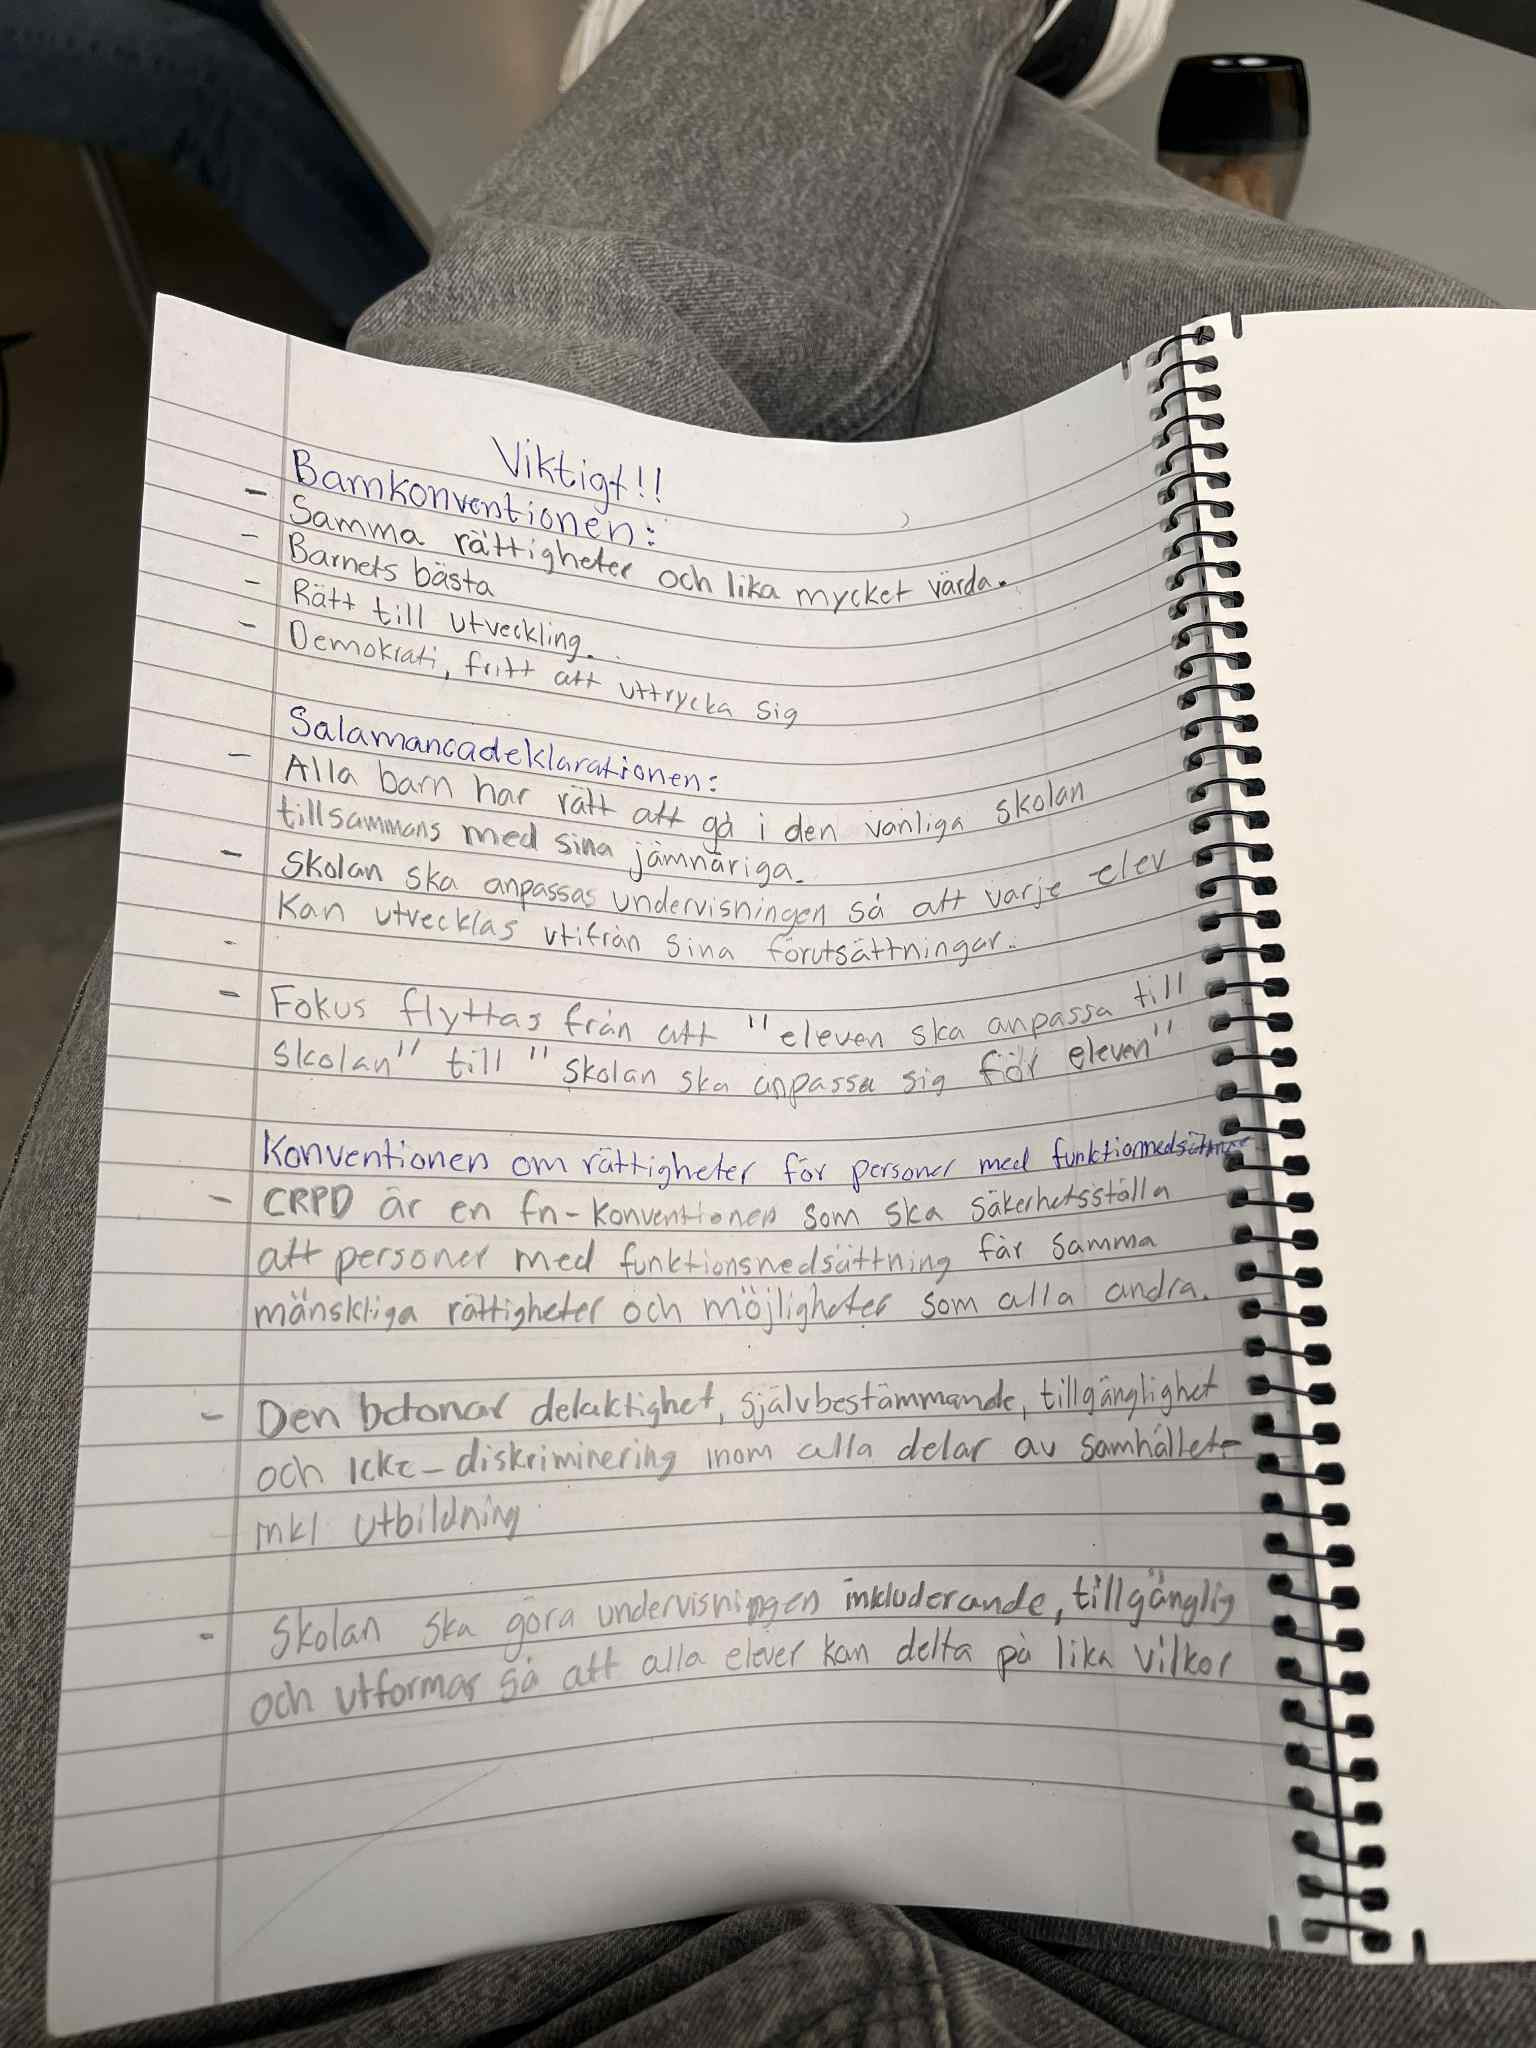 Viktigt!!
Barnkonventionen:
- Samma rättigheter och lika mycket värda.
- Barnets bästa
- Rätt till utveckling.
- Demokrati, fritt att uttrycka sig
Salamancadeklarationen:
- Alla barn har rätt att gå i den vanliga skolan
tillsammans med sina jämnåriga.
- Skolan ska anpassas undervisningen så att varje elev
kan utvecklas utifrån sina förutsättningar.
-
- Fokus flyttas från att "eleven ska anpassa till
skolan" till "skolan ska anpassa sig för eleven"
Konventionen om rättigheter för personer med
- CRPD är en fn-konventionen som ska säkerhetsställa
att personer med funktionsnedsättning får samma
mänskliga rättigheter och möjligheter som alla andra.
- Den betonar delaktighet, självbestämmande, tillgänglighet
och icke-diskriminering inom alla delar av samhället-
inkl utbildning
- Skolan ska göra undervisningen inkluderande, tillgänglig
och utformas så att alla elever kan delta på lika vilkor